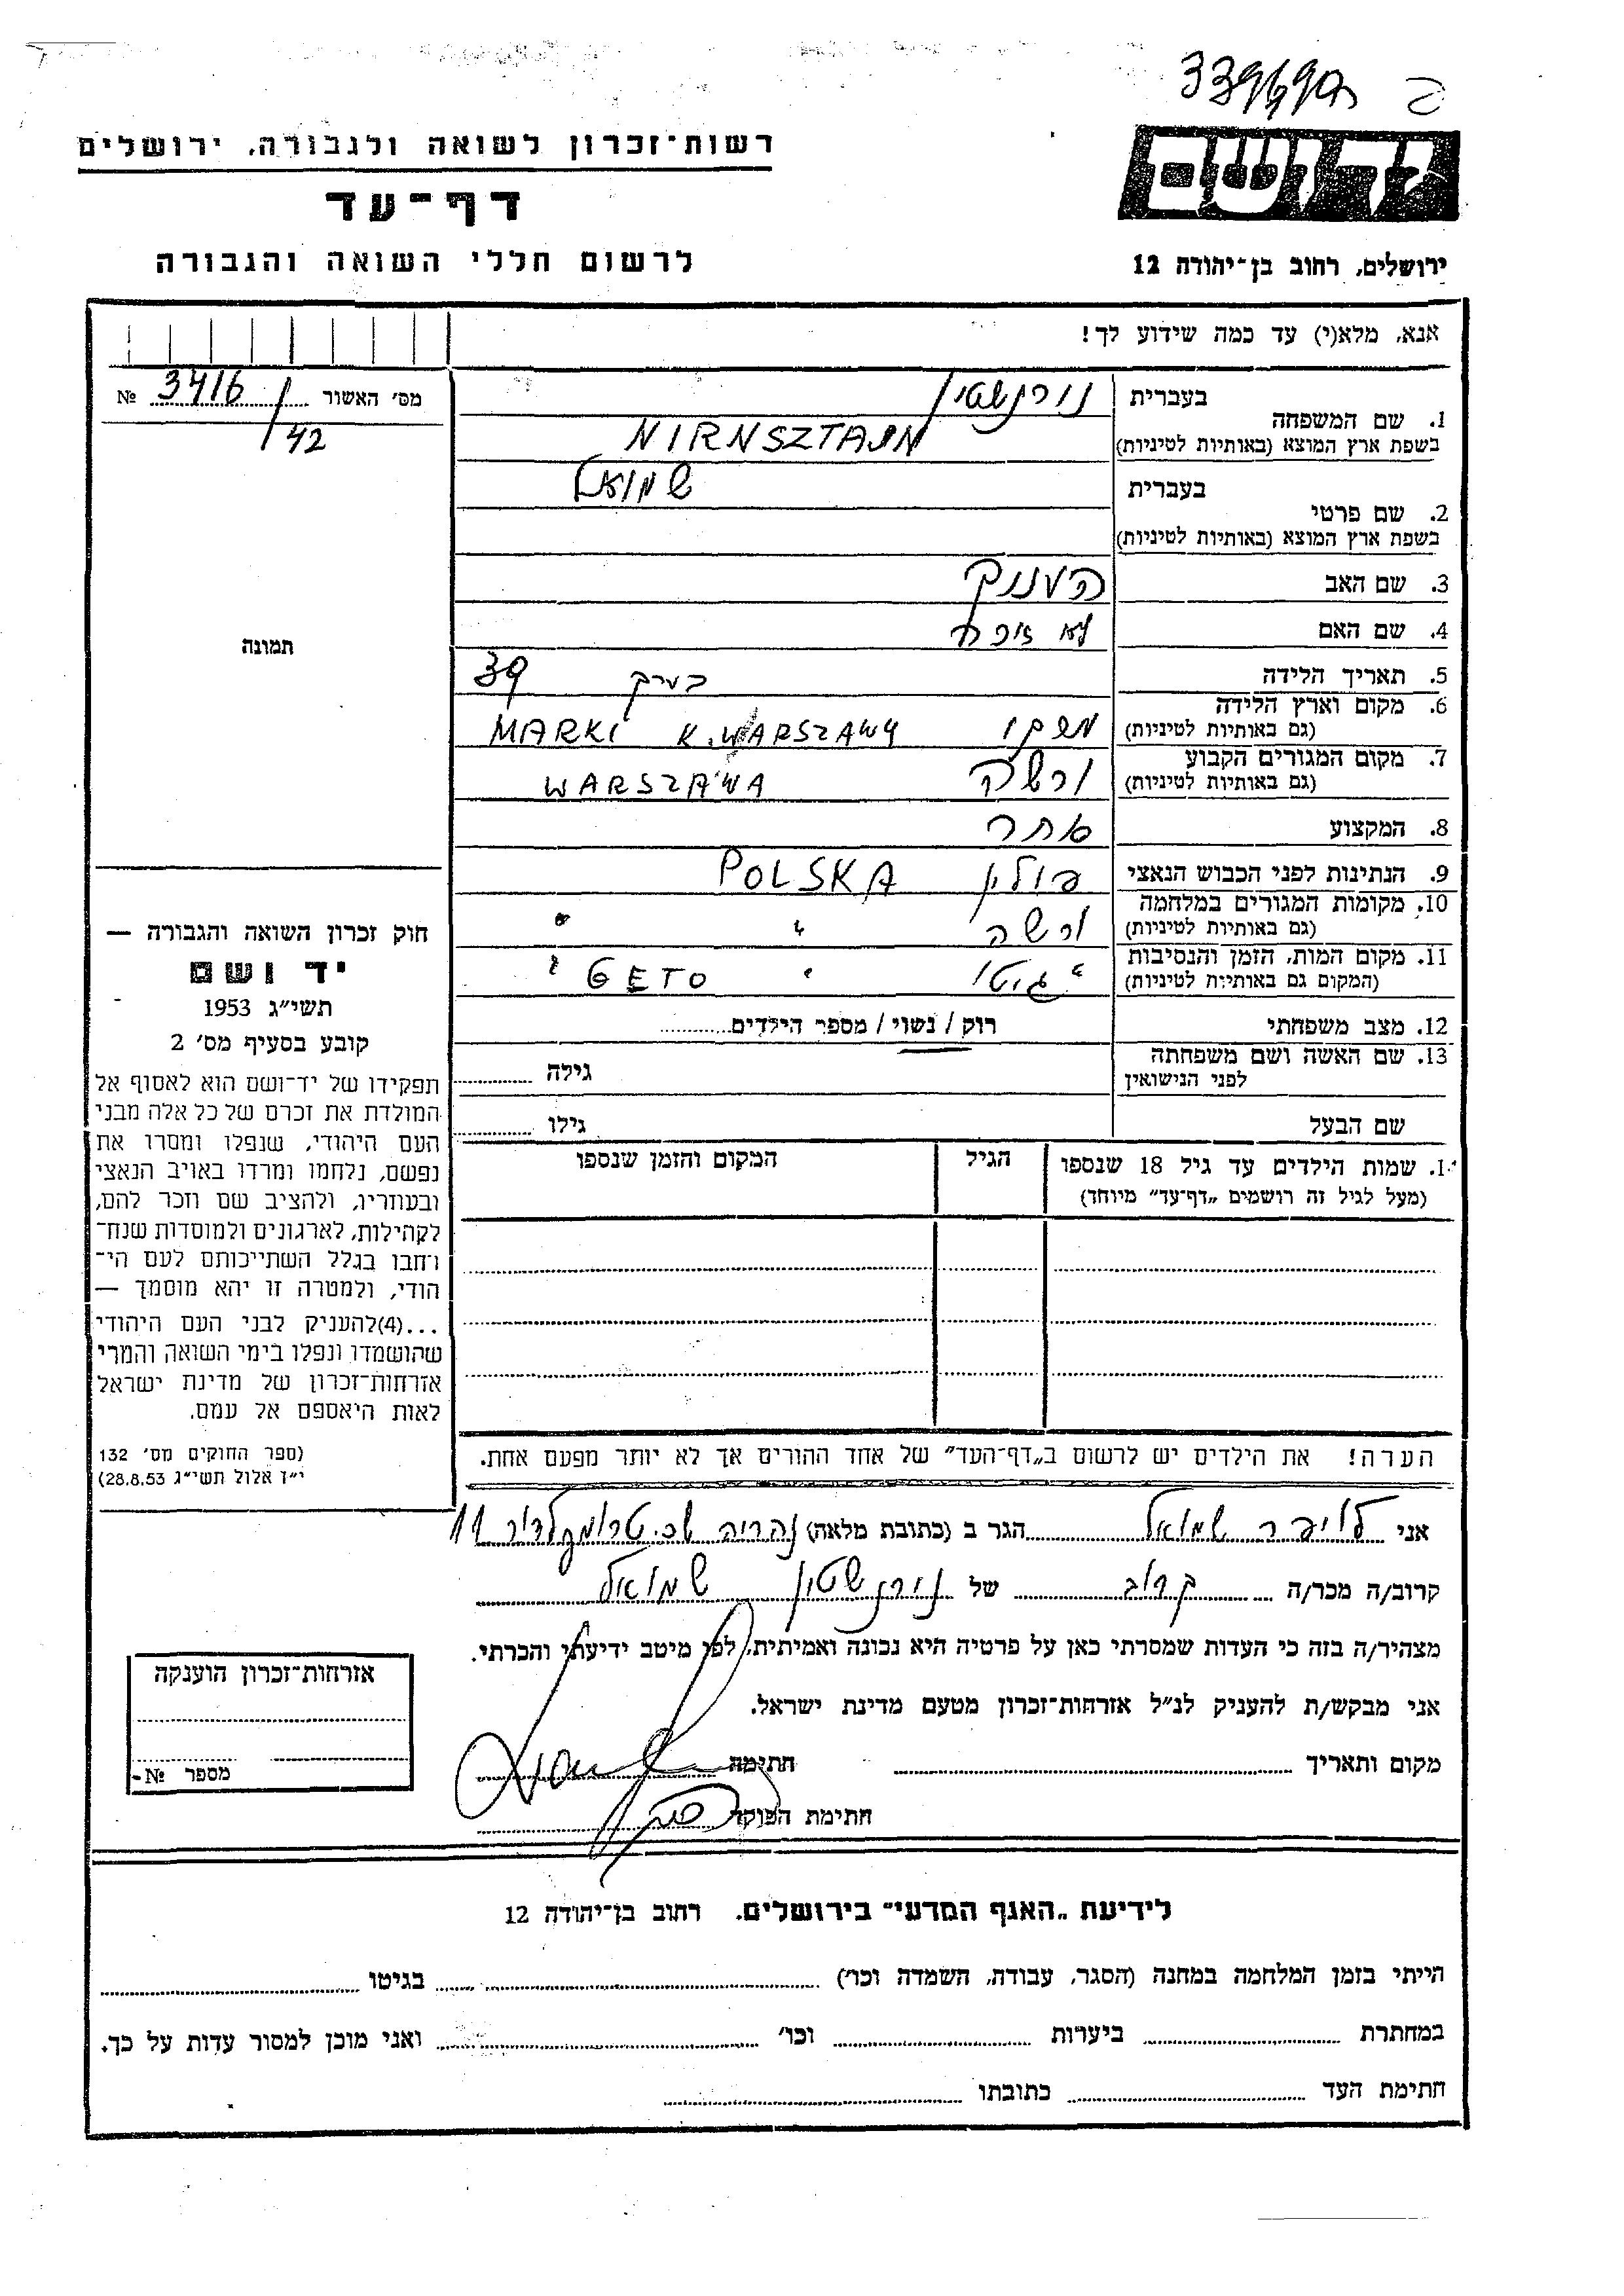 339690 ם
רשות־זכרון לשואה ולגבורה, ירושלים
דף־עד
לרשום חללי השואה והגבורה
ידושם
ירושלים, רחוב בן־יהודה 12
אנא, מלא(י) עד כמה שידוע לך!
מס׳ האשור 3416 №
42
1. שם המשפחה בעברית נירנשטין
בשפת ארץ המוצא (באותיות לטיניות) NIRNSZTAJN
2. שם פרטי בעברית שמואל
בשפת ארץ המוצא (באותיות לטיניות)
3. שם האב הענוך
4. שם האם לא זוכר
5. תאריך הלידה בערך 39
6. מקום וארץ הלידה
(גם באותיות לטיניות) MARKI K. WARSZAWY
7. מקום המגורים הקבוע
(גם באותיות לטיניות) ורשה WARSZAWA
8. המקצוע סוחר
9. הנתינות לפני הכבוש הנאצי פולין POLSKA
10. מקומות המגורים במלחמה
(גם באותיות לטיניות) ורשה " "
11. מקום המות, הזמן והנסיבות
(המקום גם באותיות לטיניות) " גיטו " GETO "
12. מצב משפחתי רוק / נשוי / מספר הילדים
13. שם האשה ושם משפחתה
לפני הנישואין גילה
שם הבעל גילו
תמונה
חוק זכרון השואה והגבורה —
יד ושם
תשי״ג 1953
קובע בסעיף מס׳ 2
תפקידו של יד־ושם הוא לאסוף אל
המולדת את זכרם של כל אלה מבני
העם היהודי, שנפלו ומסרו את
נפשם, נלחמו ומרדו באויב הנאצי
ובעוזריו, ולהציב שם וזכר להם,
לקהילות, לארגונים ולמוסדות שנח־
רחבו בגלל השתייכותם לעם הי־
הודי, ולמטרה זו יהא מוסמך —
...(4)להעניק לבני העם היהודי
שהושמדו ונפלו בימי השואה והמרי
אזרחות־זכרון של מדינת ישראל
לאות היאספם אל עמם.
(ספר החוקים מס׳ 132
י״ז אלול תשי״ג 28.8.53)
1. שמות הילדים עד גיל 18 שנספו הגיל המקום והזמן שנספו
(מעל לגיל זה רושמים „דף־עד״ מיוחד)
הערה! את הילדים יש לרשום ב„דף־העד״ של אחד ההורים אך לא יותר מפעם אחת.
אני שמואל הגר ב (כתובת מלאה) נהריה שכ. טרומפלדור 11
קרוב/ה מכר/ה קרוב של נירנשטין שמואל
מצהיר/ה בזה כי העדות שמסרתי כאן על פרטיה היא נכונה ואמיתית, לפי מיטב ידיעתי והכרתי.
אני מבקש/ת להעניק לנ״ל אזרחות־זכרון מטעם מדינת ישראל.
מקום ותאריך חתימה
חתימת הפוקד
אזרחות־זכרון הוענקה
מספר №
לידיעת „האגף המדעי״ בירושלים. רחוב בן־יהודה 12
הייתי בזמן המלחמה במחנה (הסגר, עבודה, השמדה וכו׳) בגיטו
במחתרת ביערות וכו׳ ואני מוכן למסור עדות על כך.
חתימת העד כתובתו